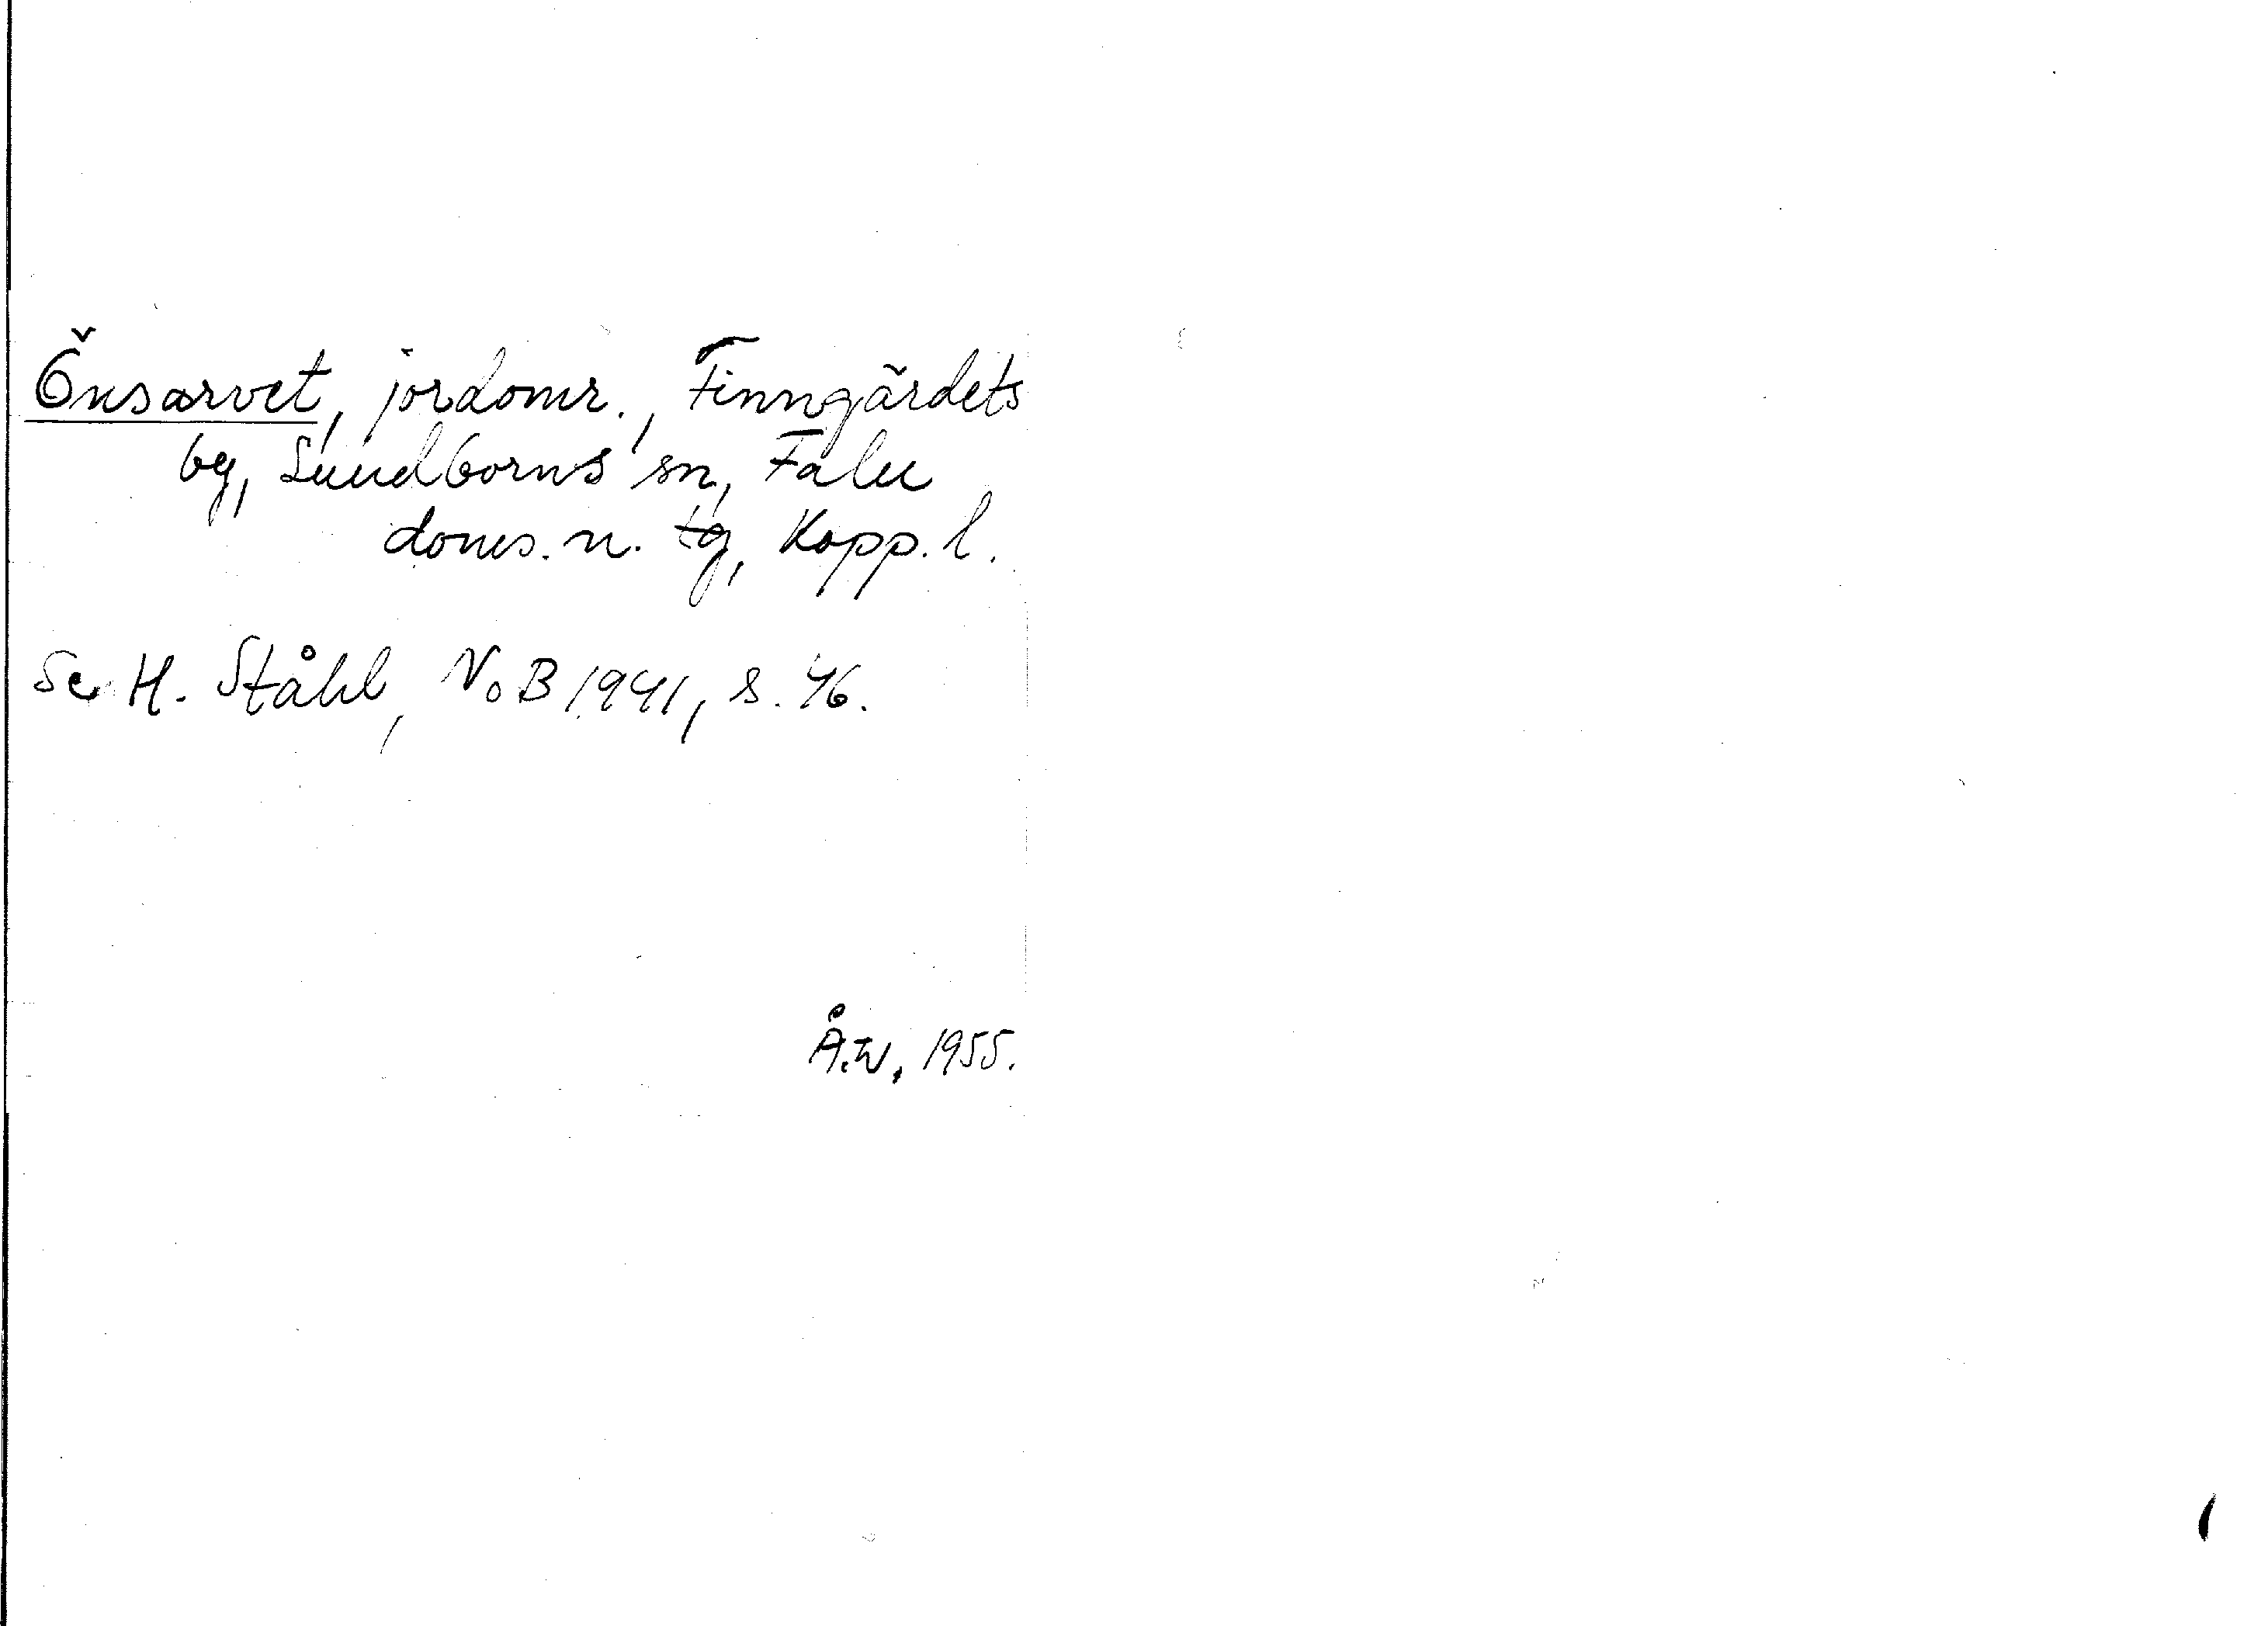 Önsarvet, jordomr., Finngärdets
by, Sundborns sn, Falu
doms. n. tg, Kopp. l.
Se H. Ståhl, NoB 1941, s. 46.
Å.W. 1955.